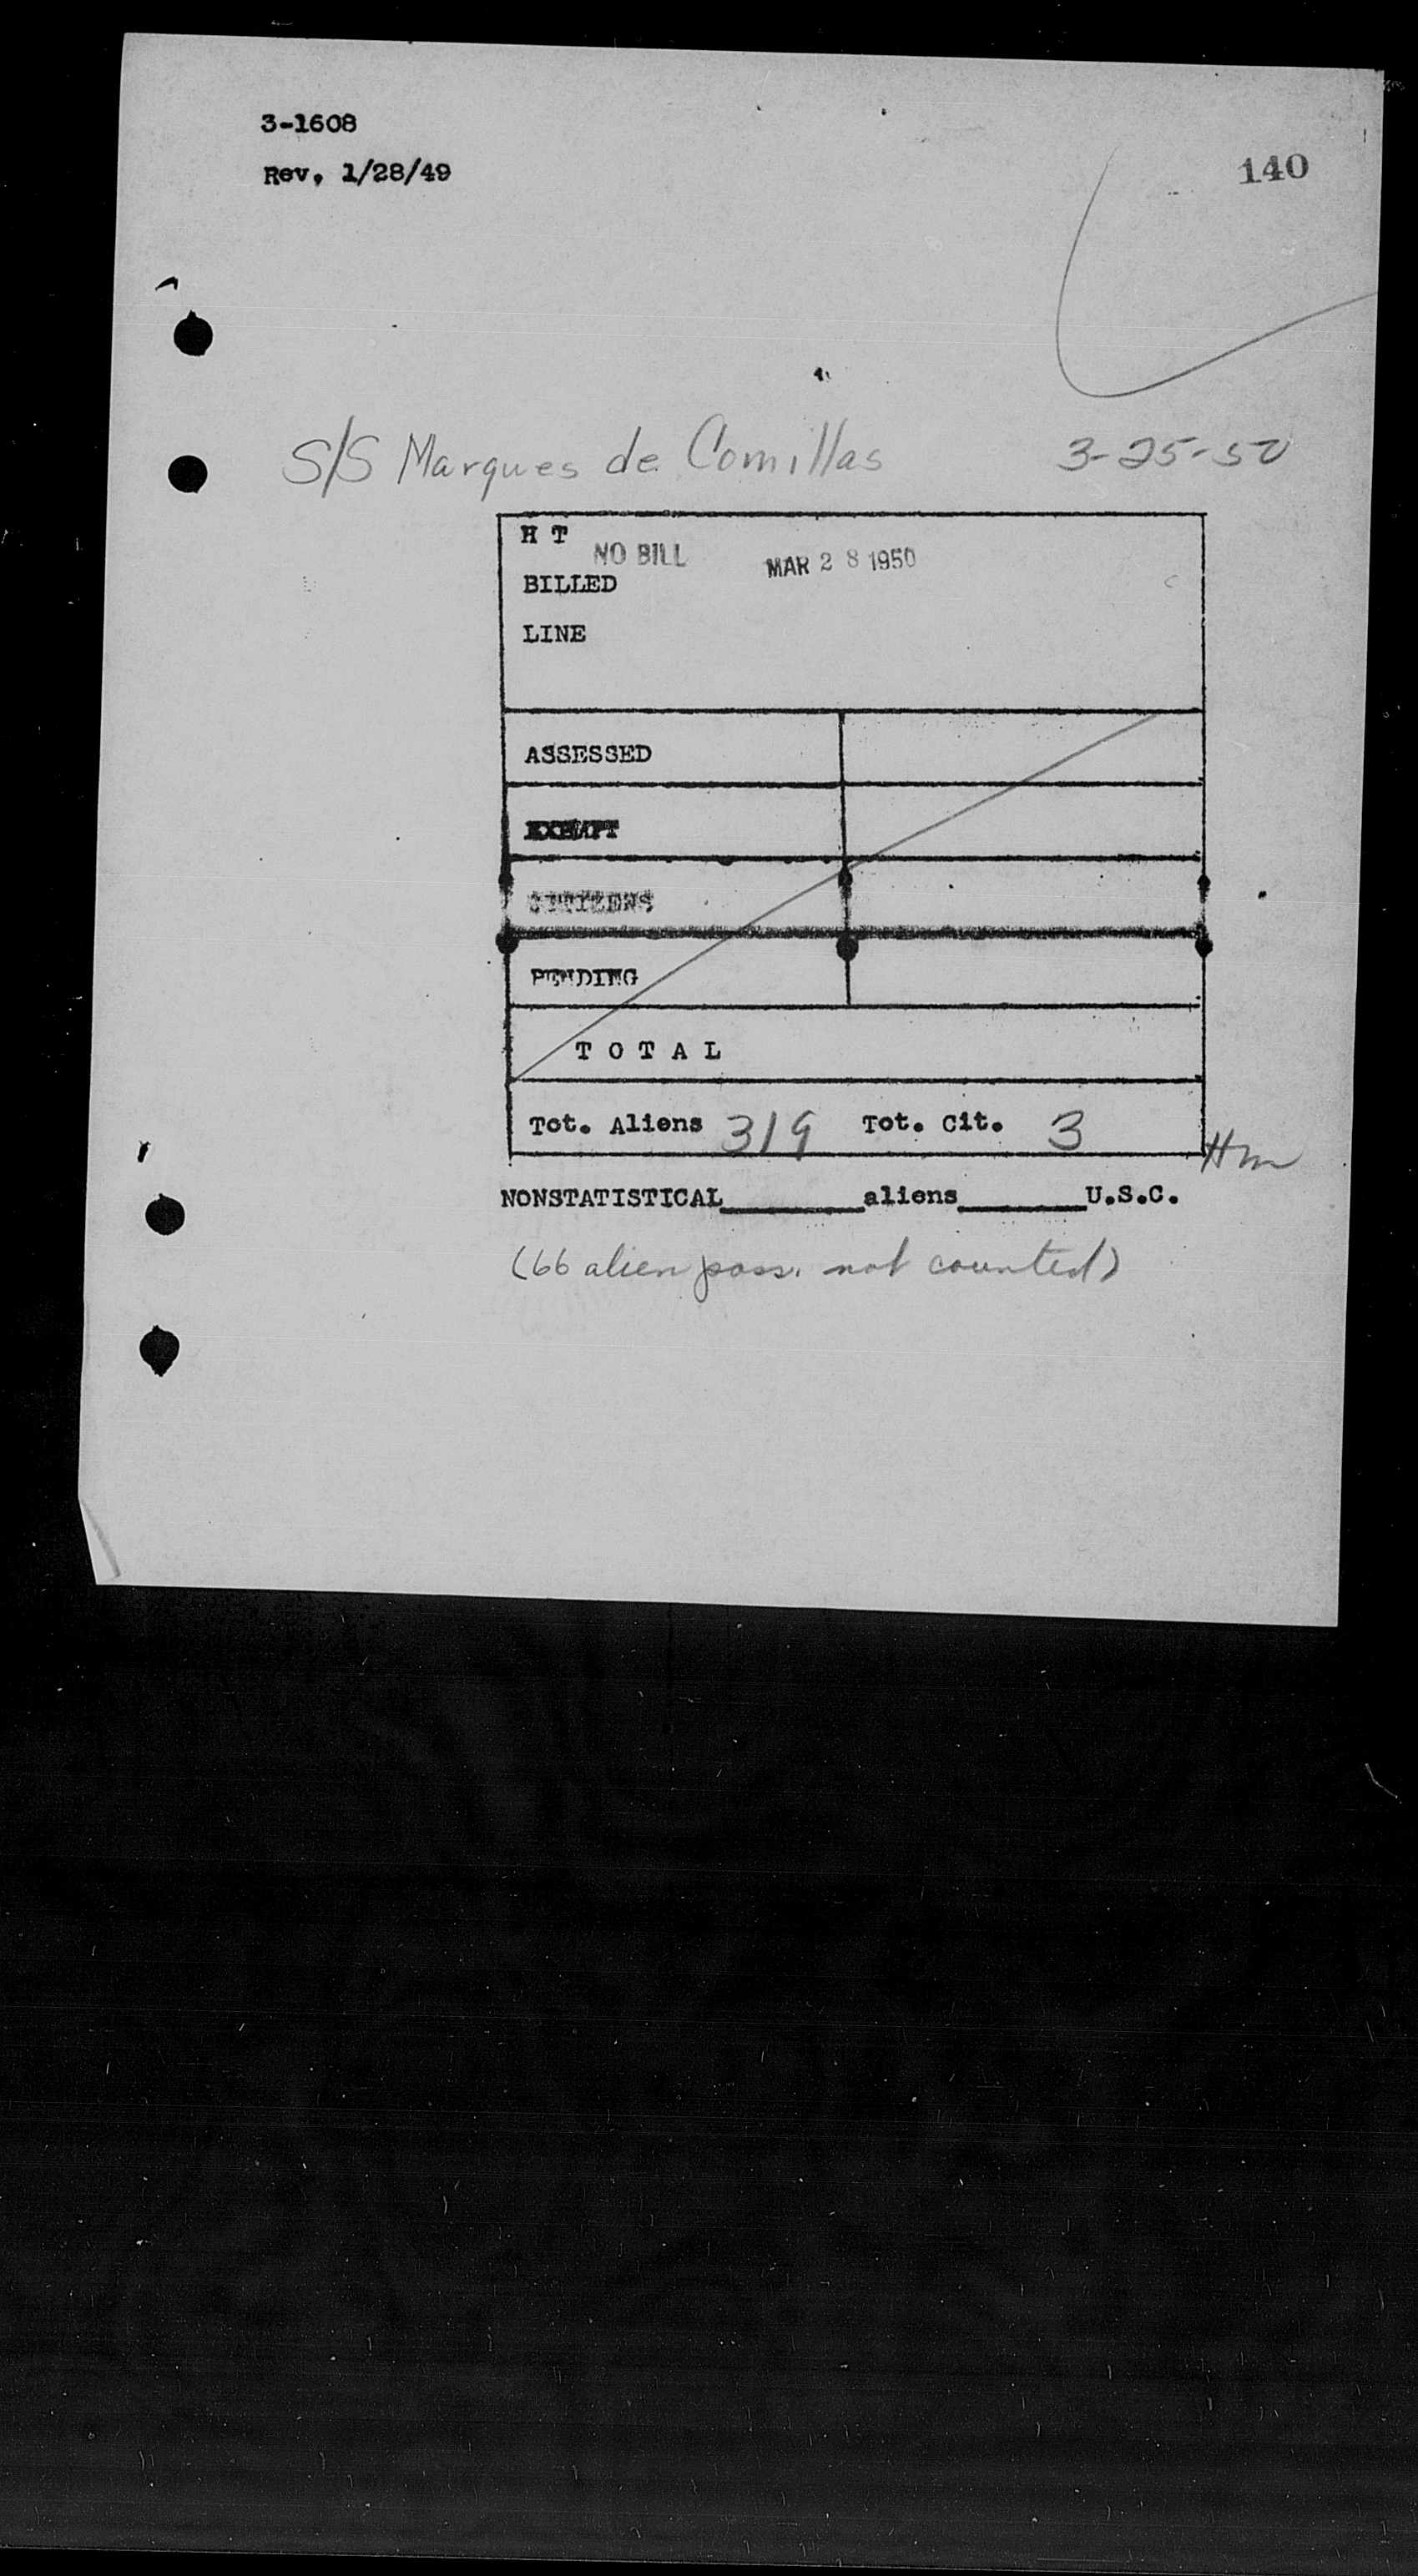 3-1608
Rev. 1/28/49
140
S/S Marques de Comillas 3-25-50
H T
NO BILL MAR 28 1950
BILLED
LINE
ASSESSED
EXEMPT
CITIZENS
PENDING
T O T A L
Tot. Aliens 319 Tot. Cit. 3
Hm
NONSTATISTICAL________aliens_______U.S.C.
(66 alien pass. not counted)